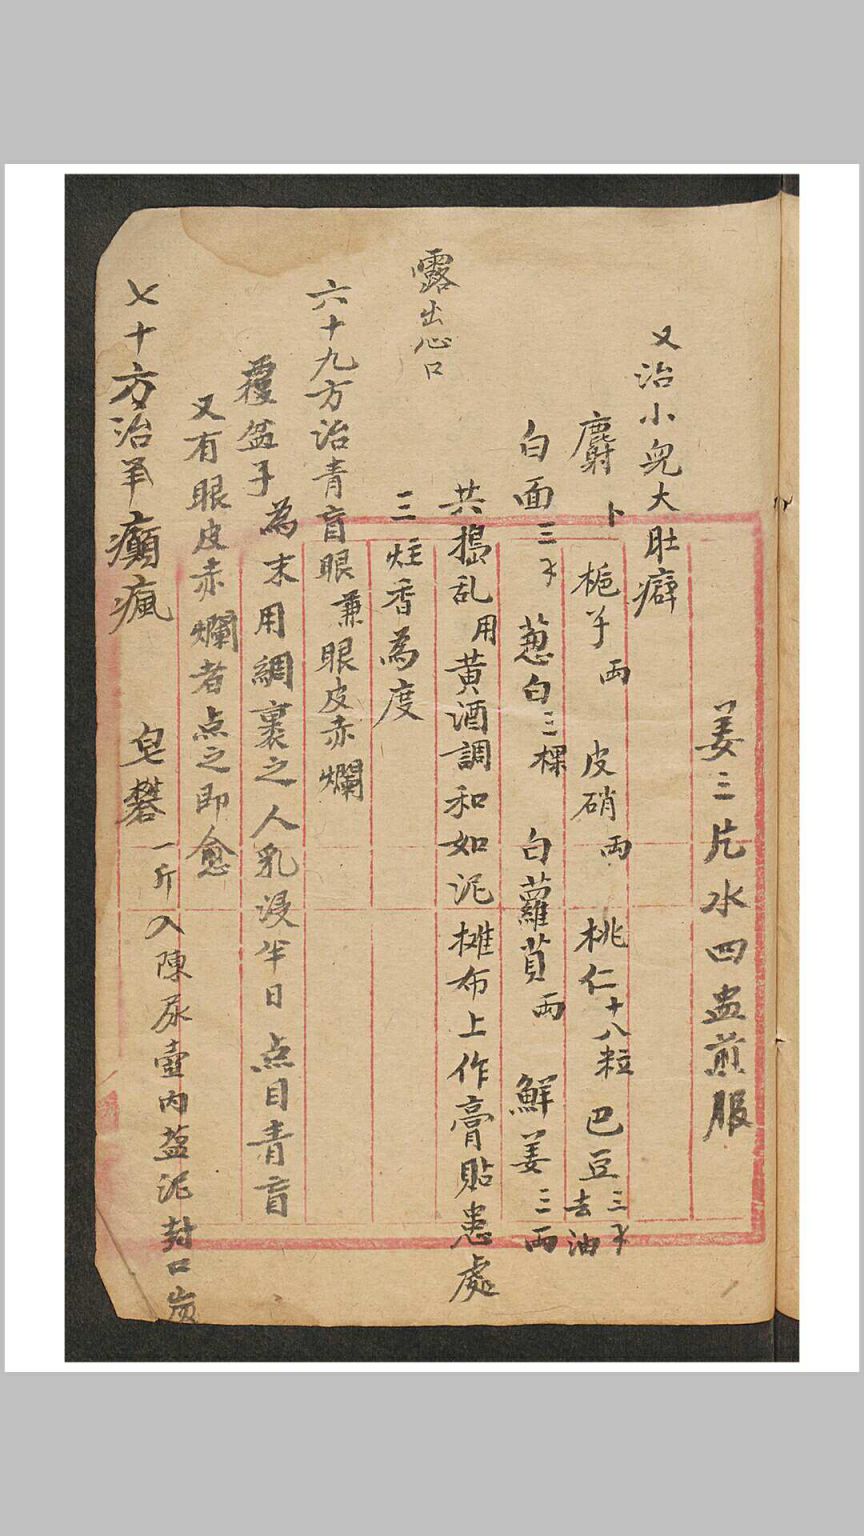 姜三片水四盅煎服
又治小兒大肚癖
麝卜 梔子兩 皮硝兩 桃仁十八粒 巴豆三才去油
白面三才 葱白三棵 白蘿蔔兩 鮮姜三兩
共搗乱用黄酒調和如泥攤布上作膏貼患處
露出心口
三炷香為度
六十九方治青盲眼兼眼皮赤爛
覆盆子為末用綢裹之人乳浸半日点目青盲
又有眼皮赤爛者点之即愈
七十方治羊癲瘋
皂礬一斤入陳尿壺內盐泥封口